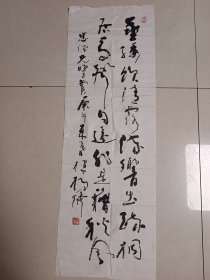 垂緌飲清露流響出疏桐
居高聲自遠非是藉秋風